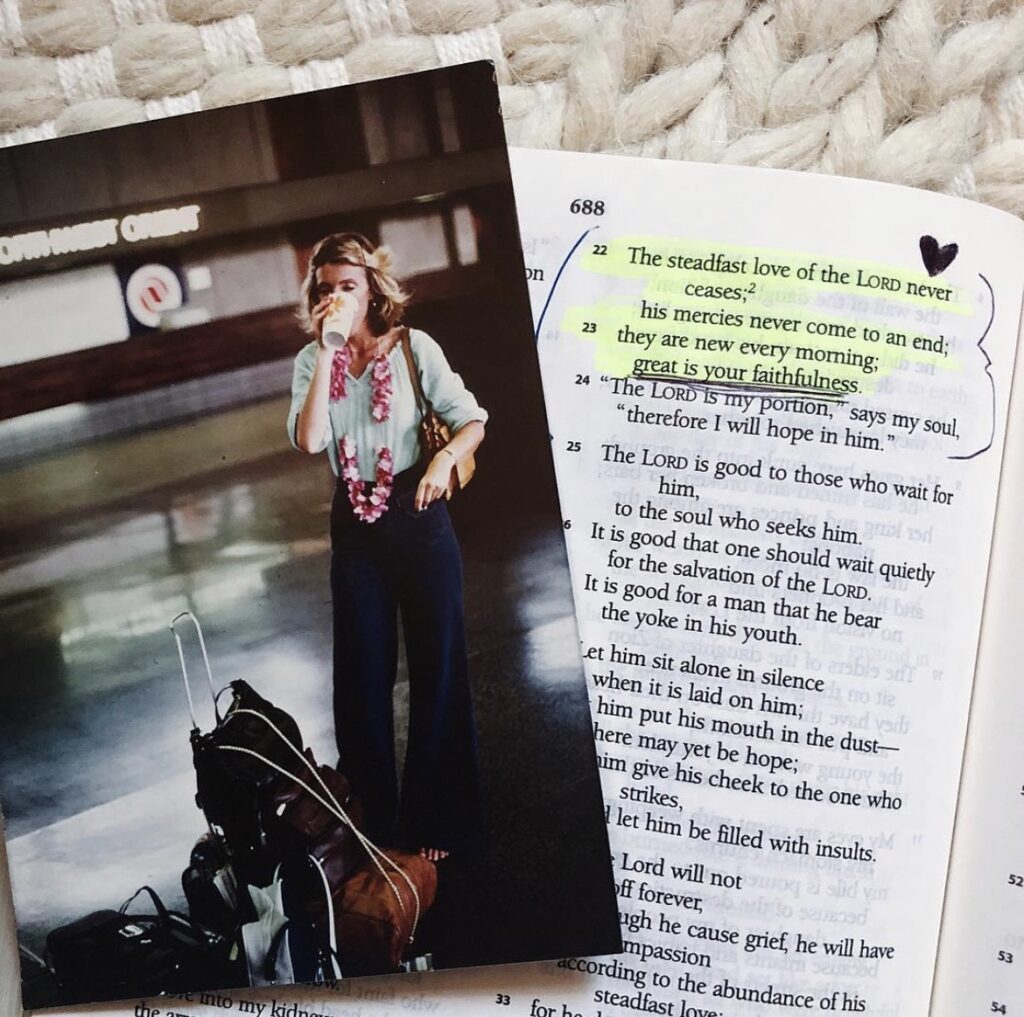 ORTHWEST ORIENT
688
on
22 The steadfast love of the LORD never
ceases;2
his mercies never come to an end;
23 they are new every morning;
great is your faithfulness.
24 “The LORD is my portion,” says my soul,
“therefore I will hope in him.”
25 The LORD is good to those who wait for
him,
to the soul who seeks him.
6 It is good that one should wait quietly
for the salvation of the LORD.
It is good for a man that he bear
the yoke in his youth.
Let him sit alone in silence
when it is laid on him;
him put his mouth in the dust—
here may yet be hope;
him give his cheek to the one who
strikes,
let him be filled with insults.
Lord will not
off forever,
ugh he cause grief, he will have
mpassion
according to the abundance of his
steadfast love;
33 for he
into my kidney
the arr
52
53
54